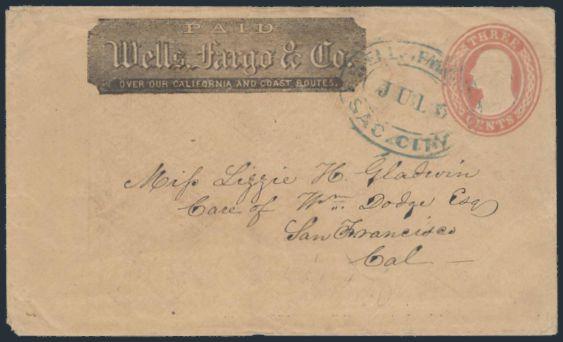 PAID
Wells, Fargo & Co.
OVER OUR CALIFORNIA AND COAST ROUTES.
WELLS, FARGO
JUL 5
SAC. CITY
THREE
CENTS
Miss Lizzie H. Gladwin
Care of Wm Dodge Esq
San Francisco
Cal